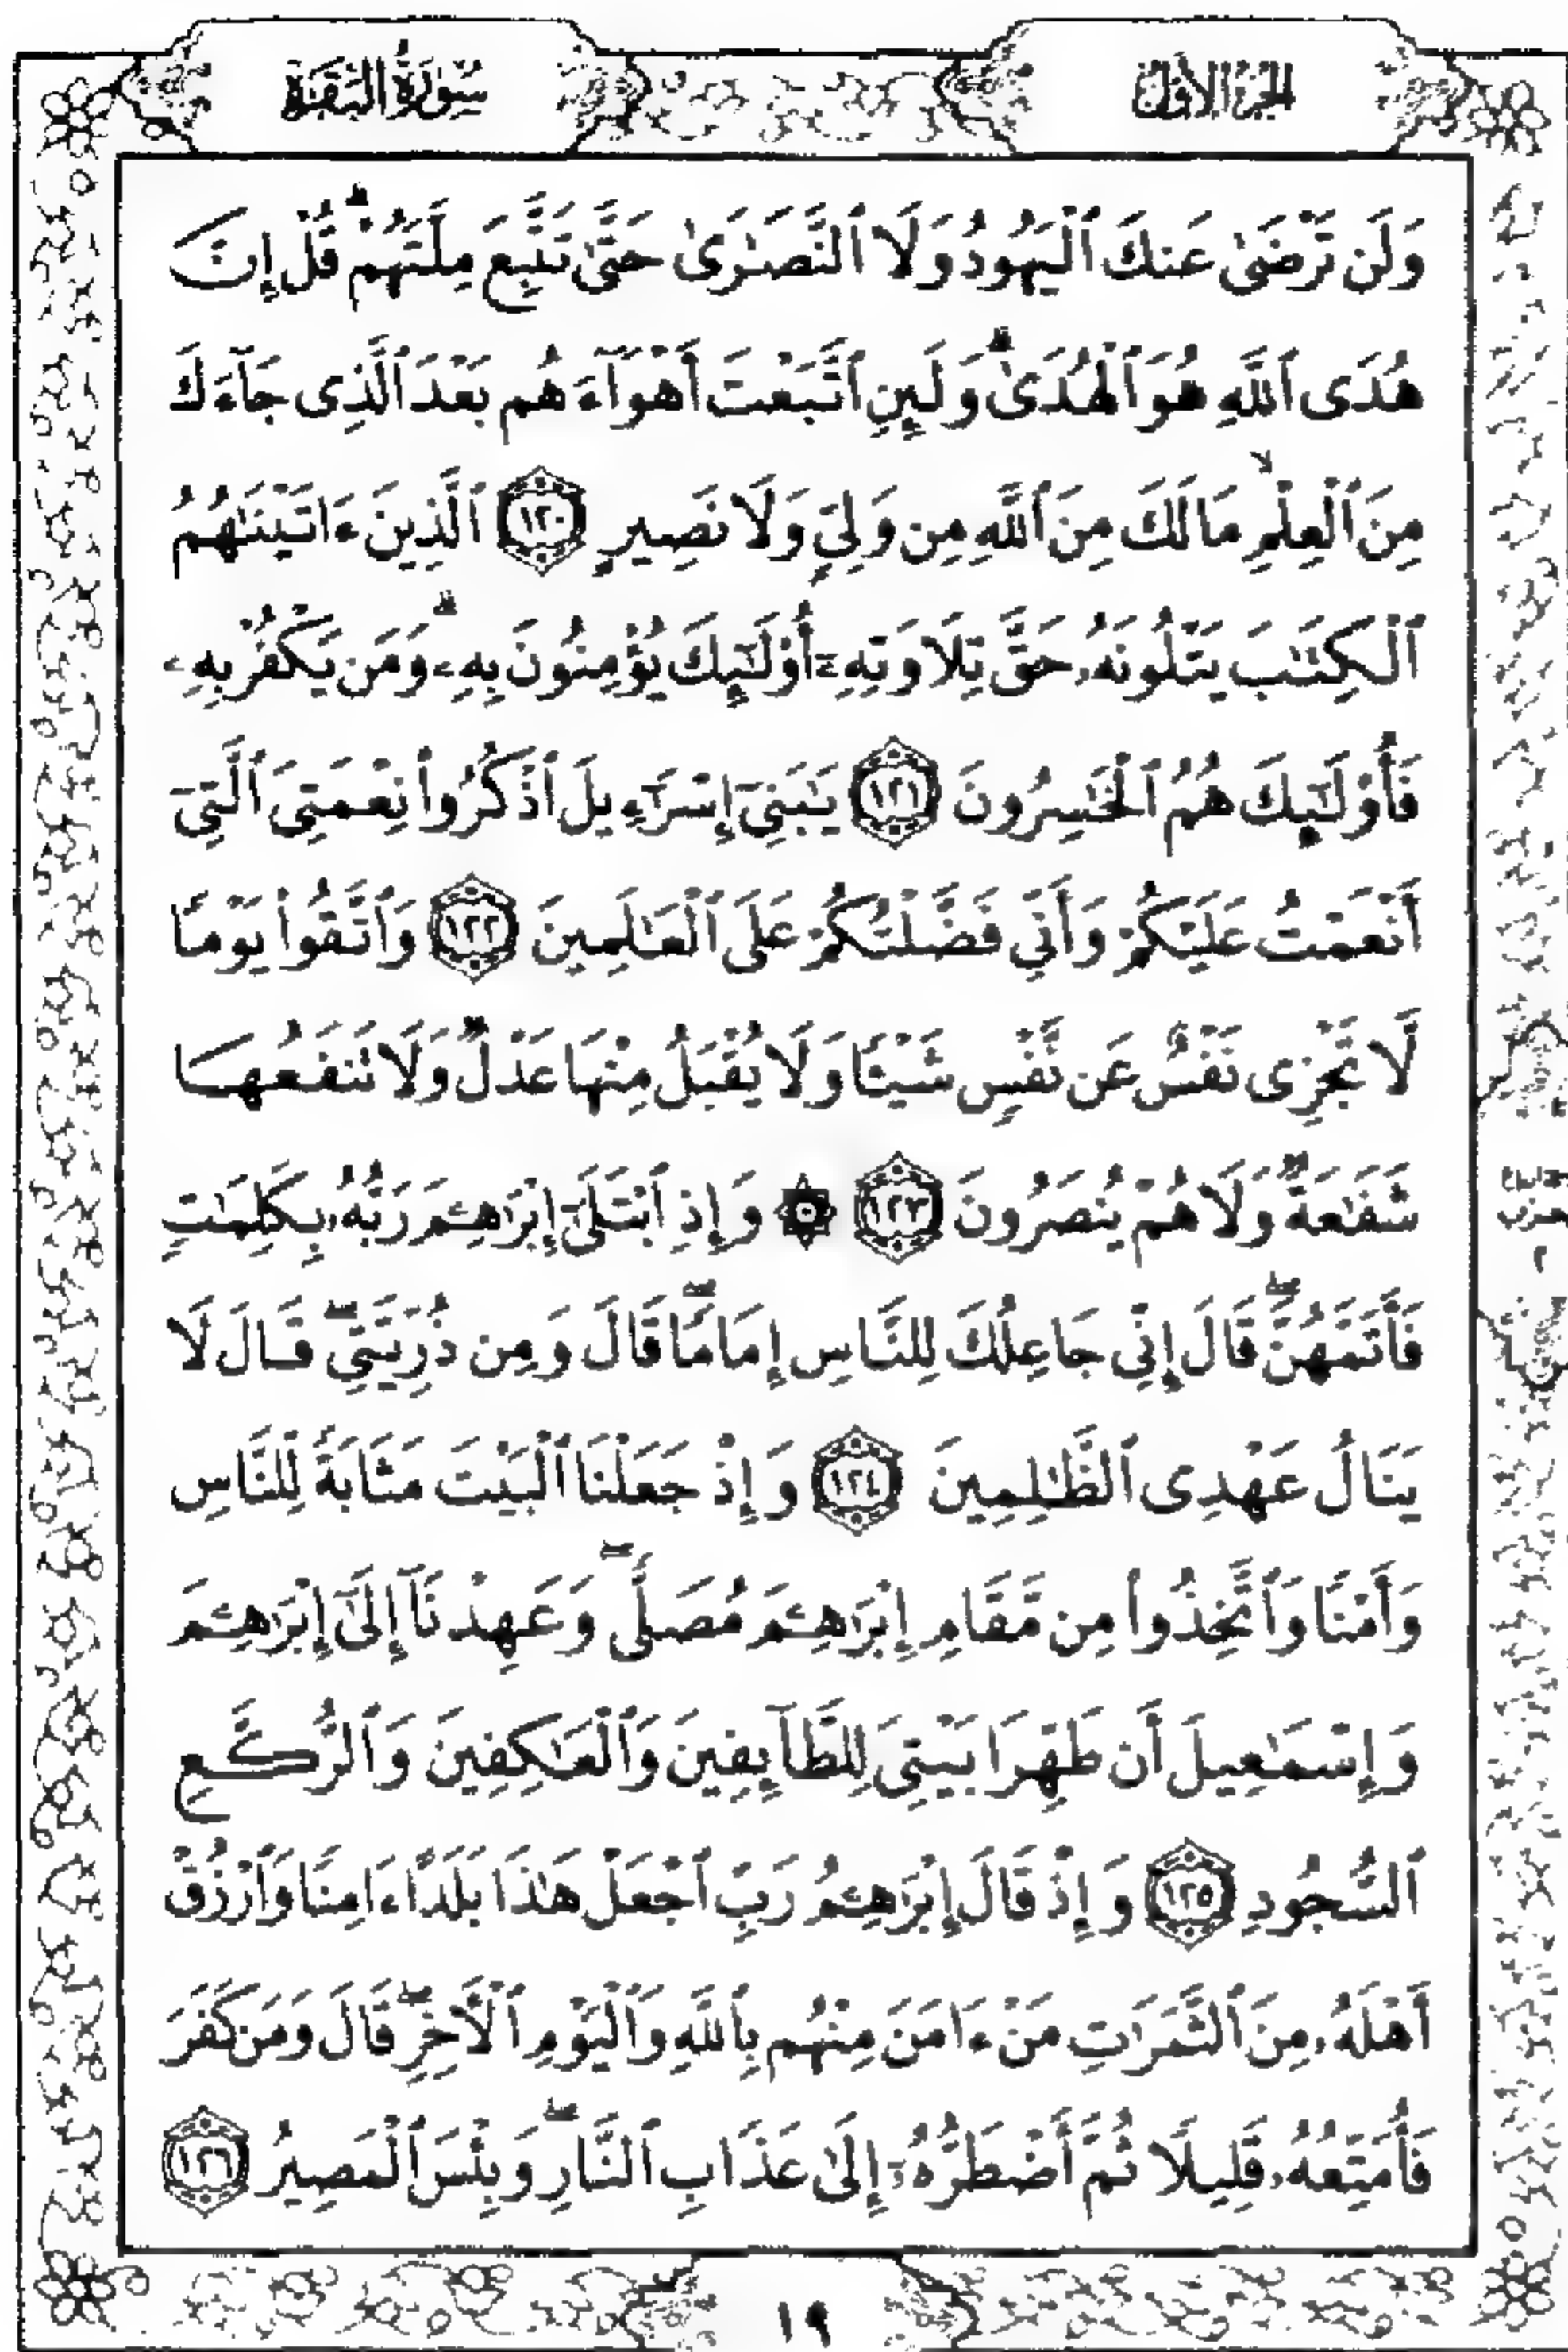 الجزء الأول
سورة البقرة
وَلَن تَرْضَىٰ عَنكَ ٱلْيَهُودُ وَلَا ٱلنَّصَـٰرَىٰ حَتَّىٰ تَتَّبِعَ مِلَّتَهُمْ ۗ قُلْ إِنَّ
هُدَى ٱللَّهِ هُوَ ٱلْهُدَىٰ ۗ وَلَئِنِ ٱتَّبَعْتَ أَهْوَآءَهُم بَعْدَ ٱلَّذِى جَآءَكَ
مِنَ ٱلْعِلْمِ ۙ مَا لَكَ مِنَ ٱللَّهِ مِن وَلِىٍّ وَلَا نَصِيرٍ ١٢٠ ٱلَّذِينَ ءَاتَيْنَـٰهُمُ
ٱلْكِتَـٰبَ يَتْلُونَهُۥ حَقَّ تِلَاوَتِهِۦٓ أُو۟لَـٰٓئِكَ يُؤْمِنُونَ بِهِۦ ۗ وَمَن يَكْفُرْ بِهِۦ
فَأُو۟لَـٰٓئِكَ هُمُ ٱلْخَـٰسِرُونَ ١٢١ يَـٰبَنِىٓ إِسْرَٰٓءِيلَ ٱذْكُرُوا۟ نِعْمَتِىَ ٱلَّتِىٓ
أَنْعَمْتُ عَلَيْكُمْ وَأَنِّى فَضَّلْتُكُمْ عَلَى ٱلْعَـٰلَمِينَ ١٢٢ وَٱتَّقُوا۟ يَوْمًا
لَّا تَجْزِى نَفْسٌ عَن نَّفْسٍ شَيْـًٔا وَلَا يُقْبَلُ مِنْهَا عَدْلٌ وَلَا تَنفَعُهَا
شَفَـٰعَةٌ وَلَا هُمْ يُنصَرُونَ ١٢٣ ۞ وَإِذِ ٱبْتَلَىٰٓ إِبْرَٰهِـۧمَ رَبُّهُۥ بِكَلِمَـٰتٍ
فَأَتَمَّهُنَّ ۖ قَالَ إِنِّى جَاعِلُكَ لِلنَّاسِ إِمَامًا ۖ قَالَ وَمِن ذُرِّيَّتِى ۖ قَالَ لَا
يَنَالُ عَهْدِى ٱلظَّـٰلِمِينَ ١٢٤ وَإِذْ جَعَلْنَا ٱلْبَيْتَ مَثَابَةً لِّلنَّاسِ
وَأَمْنًا وَٱتَّخِذُوا۟ مِن مَّقَامِ إِبْرَٰهِـۧمَ مُصَلًّى ۖ وَعَهِدْنَآ إِلَىٰٓ إِبْرَٰهِـۧمَ
وَإِسْمَـٰعِيلَ أَن طَهِّرَا بَيْتِىَ لِلطَّآئِفِينَ وَٱلْعَـٰكِفِينَ وَٱلرُّكَّعِ
ٱلسُّجُودِ ١٢٥ وَإِذْ قَالَ إِبْرَٰهِـۧمُ رَبِّ ٱجْعَلْ هَـٰذَا بَلَدًا ءَامِنًا وَٱرْزُقْ
أَهْلَهُۥ مِنَ ٱلثَّمَرَٰتِ مَنْ ءَامَنَ مِنْهُم بِٱللَّهِ وَٱلْيَوْمِ ٱلْـَٔاخِرِ ۖ قَالَ وَمَن كَفَرَ
فَأُمَتِّعُهُۥ قَلِيلًا ثُمَّ أَضْطَرُّهُۥٓ إِلَىٰ عَذَابِ ٱلنَّارِ ۖ وَبِئْسَ ٱلْمَصِيرُ ١٢٦
١٩